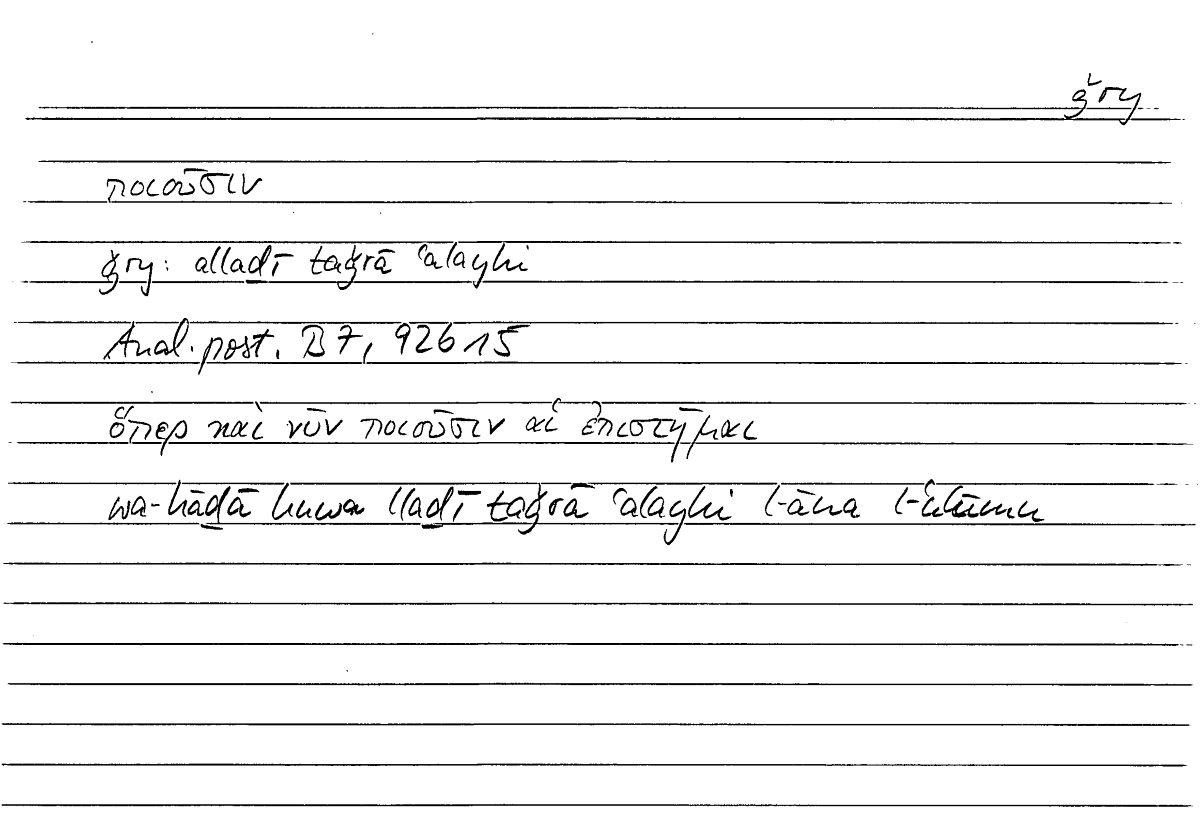 ǧry
ποιοῦσιν
ǧry: allaḏī taǧrā ʿalayhi
Anal. post. B 7, 92b15
ὅπερ καὶ νῦν ποιοῦσιν αἱ ἐπιστῆμαι
wa-hāḏā huwa llaḏī taǧrā ʿalayhi l-āna l-ʿulūmu